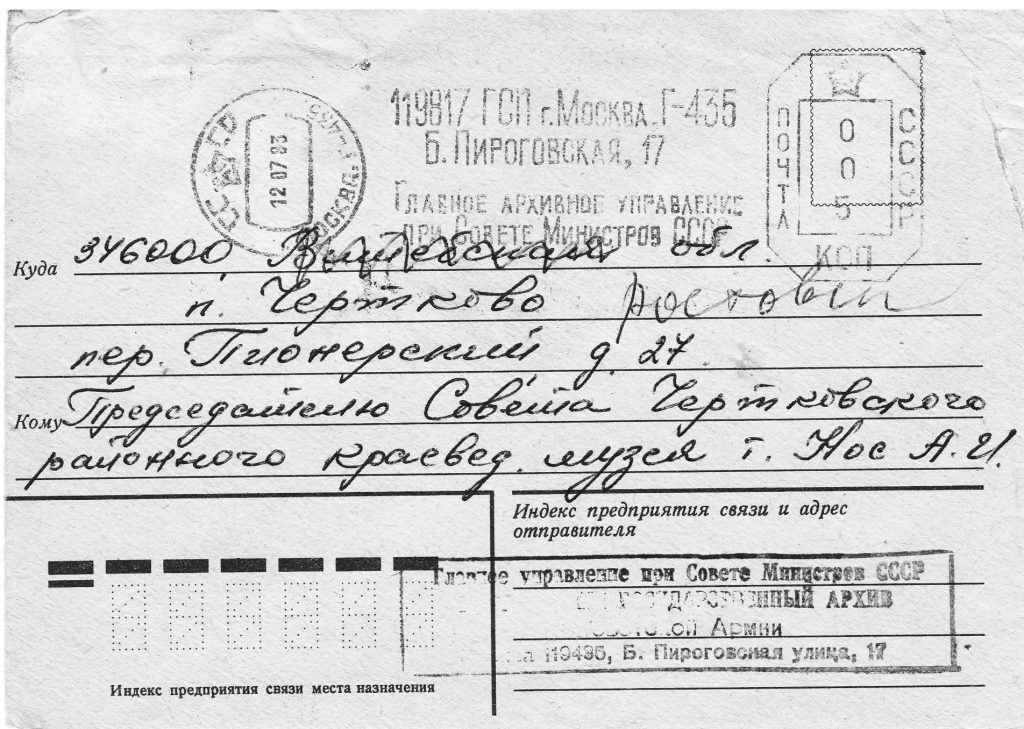 СССР
12 07 83
МОСКВА Г-435
119817 ГСП г.Москва, Г-435
Б.Пироговская, 17
Главное архивное управление
при Совете Министров СССР
ПОЧТА
СССР
005
КОП
Куда 346000 обл.
п. Чертково Ростовск
пер. Пионерский д. 27
Кому Председателю Совета Чертковского
районного краевед. музея т. Нос А.И.
Индекс предприятия связи и адрес
отправителя
Главное управление при Совете Министров СССР
ГОСУДАРСТВЕННЫЙ АРХИВ
Советской Армии
119435, Б. Пироговская улица, 17
Индекс предприятия связи места назначения